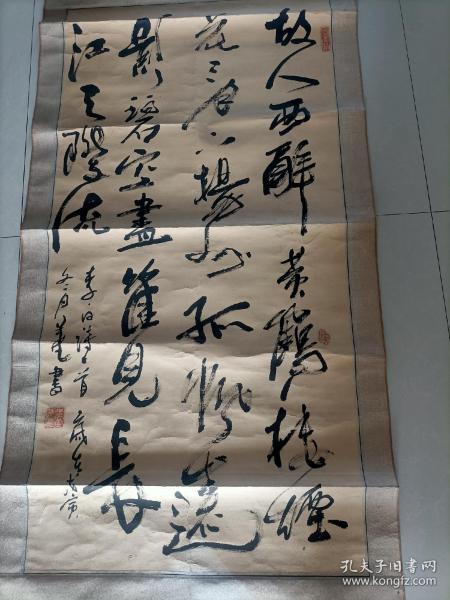 故人西辭黄鶴楼煙
花三月下揚州孤帆遠
影碧空盡惟見長
江天際流
李白詩一首 歲在戊寅
冬月書
孔夫子旧书网
https://www.kongfz.com/